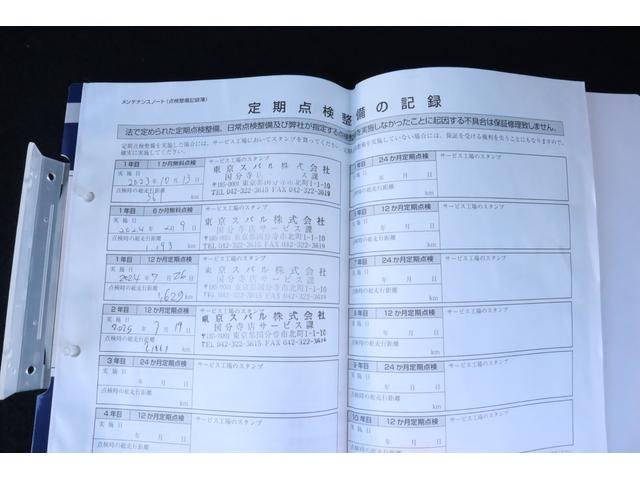 メンテナンスノート（点検整備記録簿）
定期点検整備の記録
法で定められた定期点検整備、日常点検整備及び弊社が指定する点検整備を実施しなかったことに起因する不具合は保証修理致しません。
定期点検整備を実施した場合には、サービス工場においてスタンプを貰ってください。
確実に実施してください。
1年目 1か月無料点検
サービス工場のスタンプ
実施日
2023年10月13日
点検時の総走行距離
km
東京スバル株式会社
〒185-0001 東京都国分寺市北町1-1-10
TEL 042-322-3615 FAX 042-322-3619
1年目 6か月無料点検
サービス工場のスタンプ
実施日
2024年2月9日
点検時の総走行距離
1,193 km
東京スバル株式会社
国分寺店サービス課
〒185-0001 東京都国分寺市北町1-1-10
TEL 042-322-3615 FAX 042-322-3619
1年目 12か月定期点検
サービス工場のスタンプ
実施日
2024年7月26日
点検時の総走行距離
1,629 km
東京スバル株式会社
国分寺店サービス課
〒185-0001 東京都国分寺市北町1-1-10
TEL 042-322-3615 FAX 042-322-3619
2年目 12か月定期点検
サービス工場のスタンプ
実施日
2025年 月19日
点検時の総走行距離
km
東京スバル株式会社
国分寺店サービス課
〒185-0001 東京都国分寺市北町1-1-10
TEL 042-322-3615 FAX 042-322-3619
3年目 24か月定期点検
サービス工場のスタンプ
実施日
年 月 日
点検時の総走行距離
km
4年目 12か月定期点検
サービス工場のスタンプ
実施日
年 月 日
点検時の総走行距離
24か月定期点検
サービス工場のスタンプ
実施日
年 月 日
点検時の総走行距離
km
12か月定期点検
サービス工場のスタンプ
実施日
年 月 日
点検時の総走行距離
km
7年目 24か月定期点検
サービス工場のスタンプ
実施日
年 月 日
点検時の総走行距離
km
8年目 12か月定期点検
サービス工場のスタンプ
実施日
年 月 日
点検時の総走行距離
km
9年目 24か月定期点検
サービス工場のスタンプ
実施日
年 月 日
点検時の総走行距離
km
10年目 12か月定期点検
サービス工場のスタンプ
実施日
年 月 日
点検時の総走行距離
km